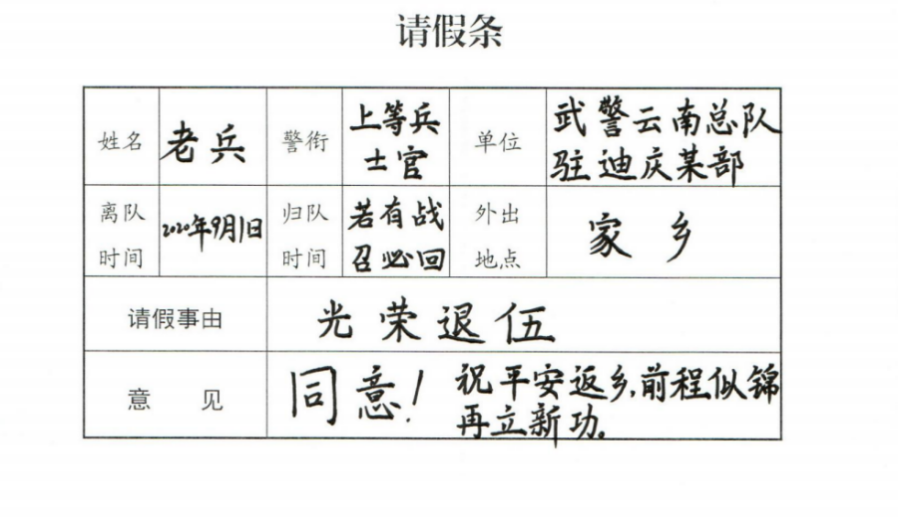 请假条
姓名 老兵 警衔 上等兵 士官 单位 武警云南总队 驻迪庆某部
离队时间 2020年9月1日 归队时间 若有战 召必回 外出地点 家乡
请假事由 光荣退伍
意见 同意! 祝平安返乡,前程似锦
再立新功。